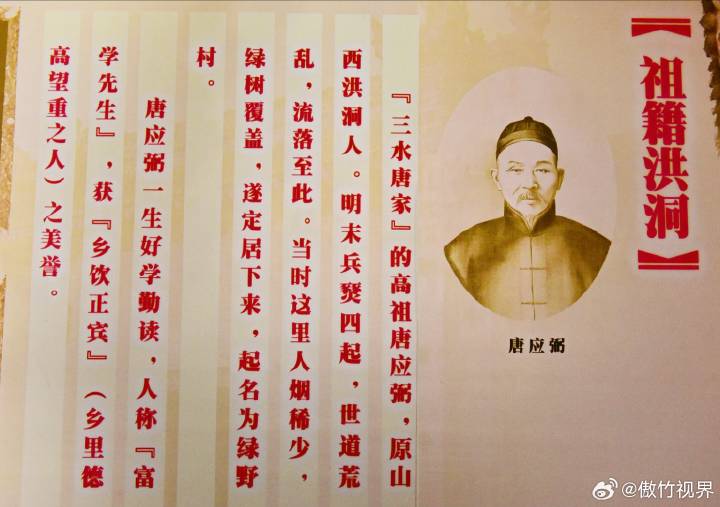 【祖籍洪洞】
唐应弼
『三水唐家』的高祖唐应弼，原山
西洪洞人。明末兵燹四起，世道荒
乱，流落至此。当时这里人烟稀少，
绿树覆盖，遂定居下来，起名为绿野
村。
唐应弼一生好学勤读，人称『富
学先生』，获『乡饮正宾』（乡里德
高望重之人）之美誉。
@傲竹视界